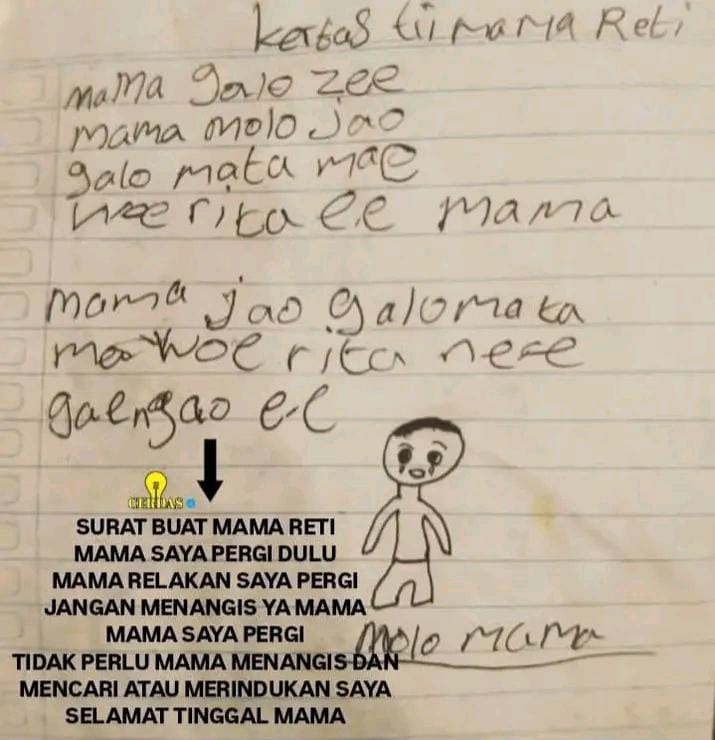 kertas tii mama Reti
mama galo zee
mama molo jao
galo mata mae
woe rita e.e mama
mama jao galo mata
mae woe rita ne-e
gaengao e-e
CERDAS
SURAT BUAT MAMA RETI
MAMA SAYA PERGI DULU
MAMA RELAKAN SAYA PERGI
JANGAN MENANGIS YA MAMA
MAMA SAYA PERGI
molo mama
TIDAK PERLU MAMA MENANGIS DAN
MENCARI ATAU MERINDUKAN SAYA
SELAMAT TINGGAL MAMA